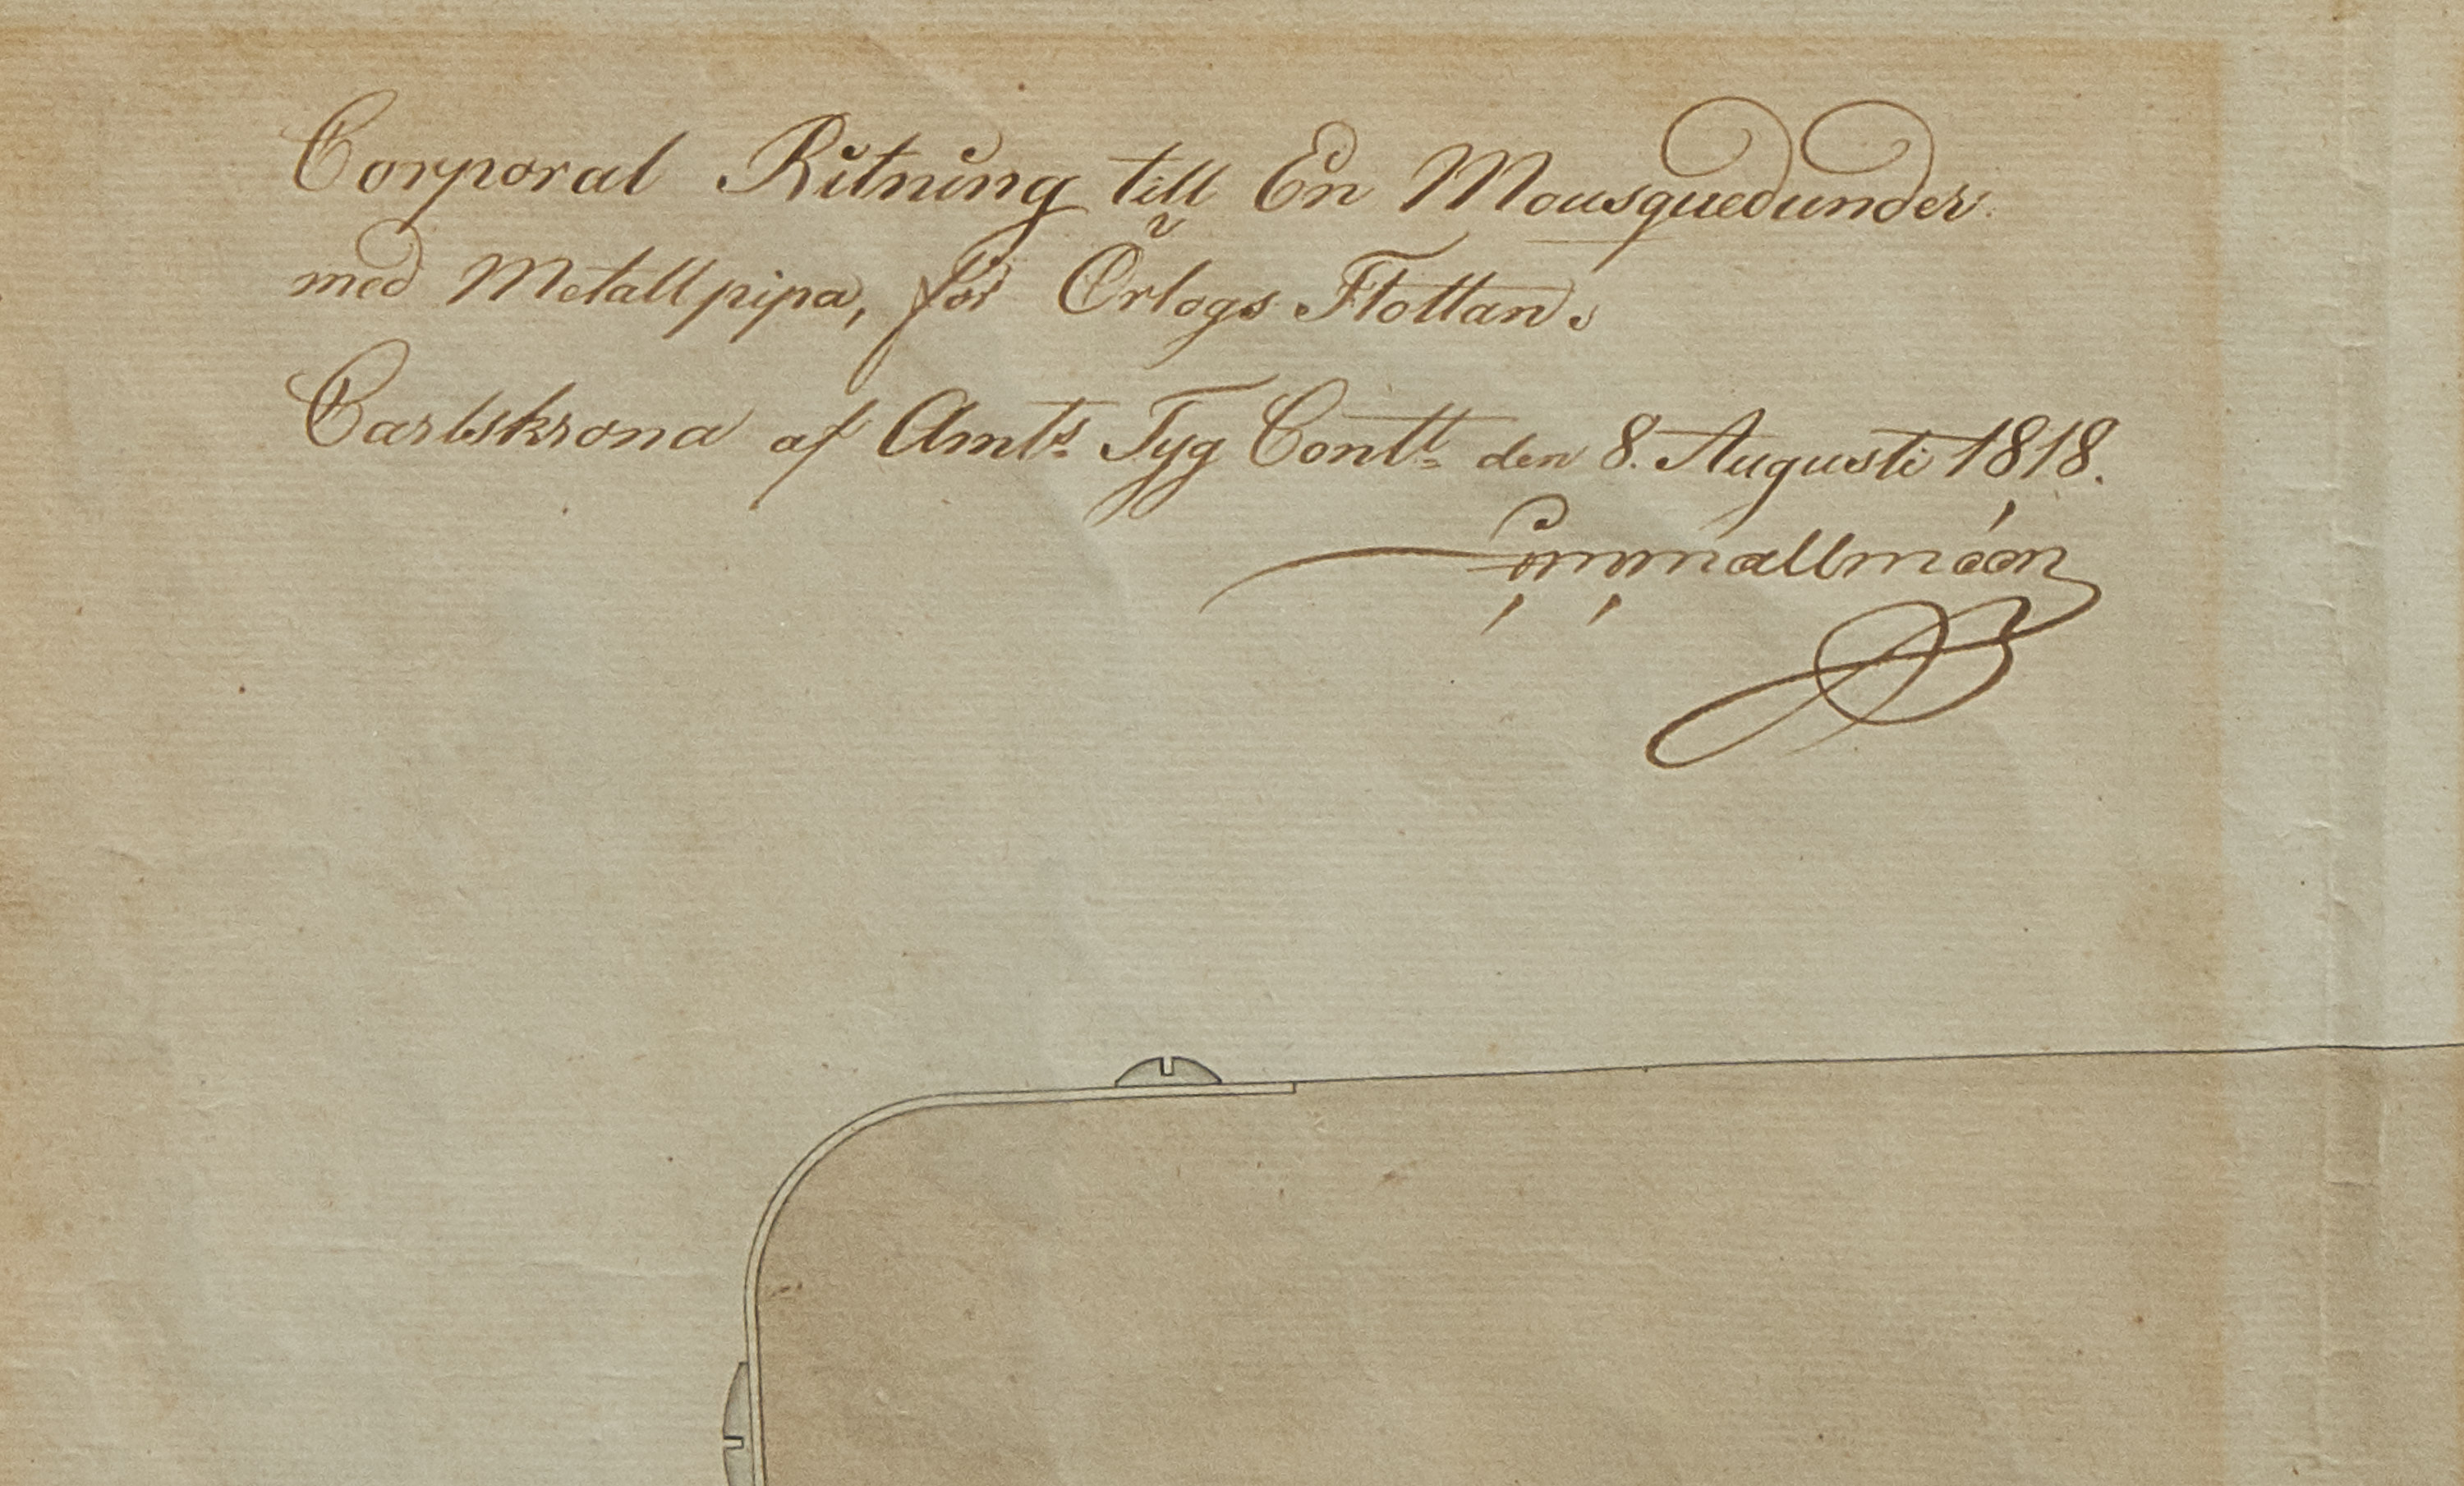 Corporal Ritning till En Mousquedunder
med Metall pipa, för Örlogs Flottan.
Carlskrona af Amts Tyg Contt den 8. Augusti 1818.